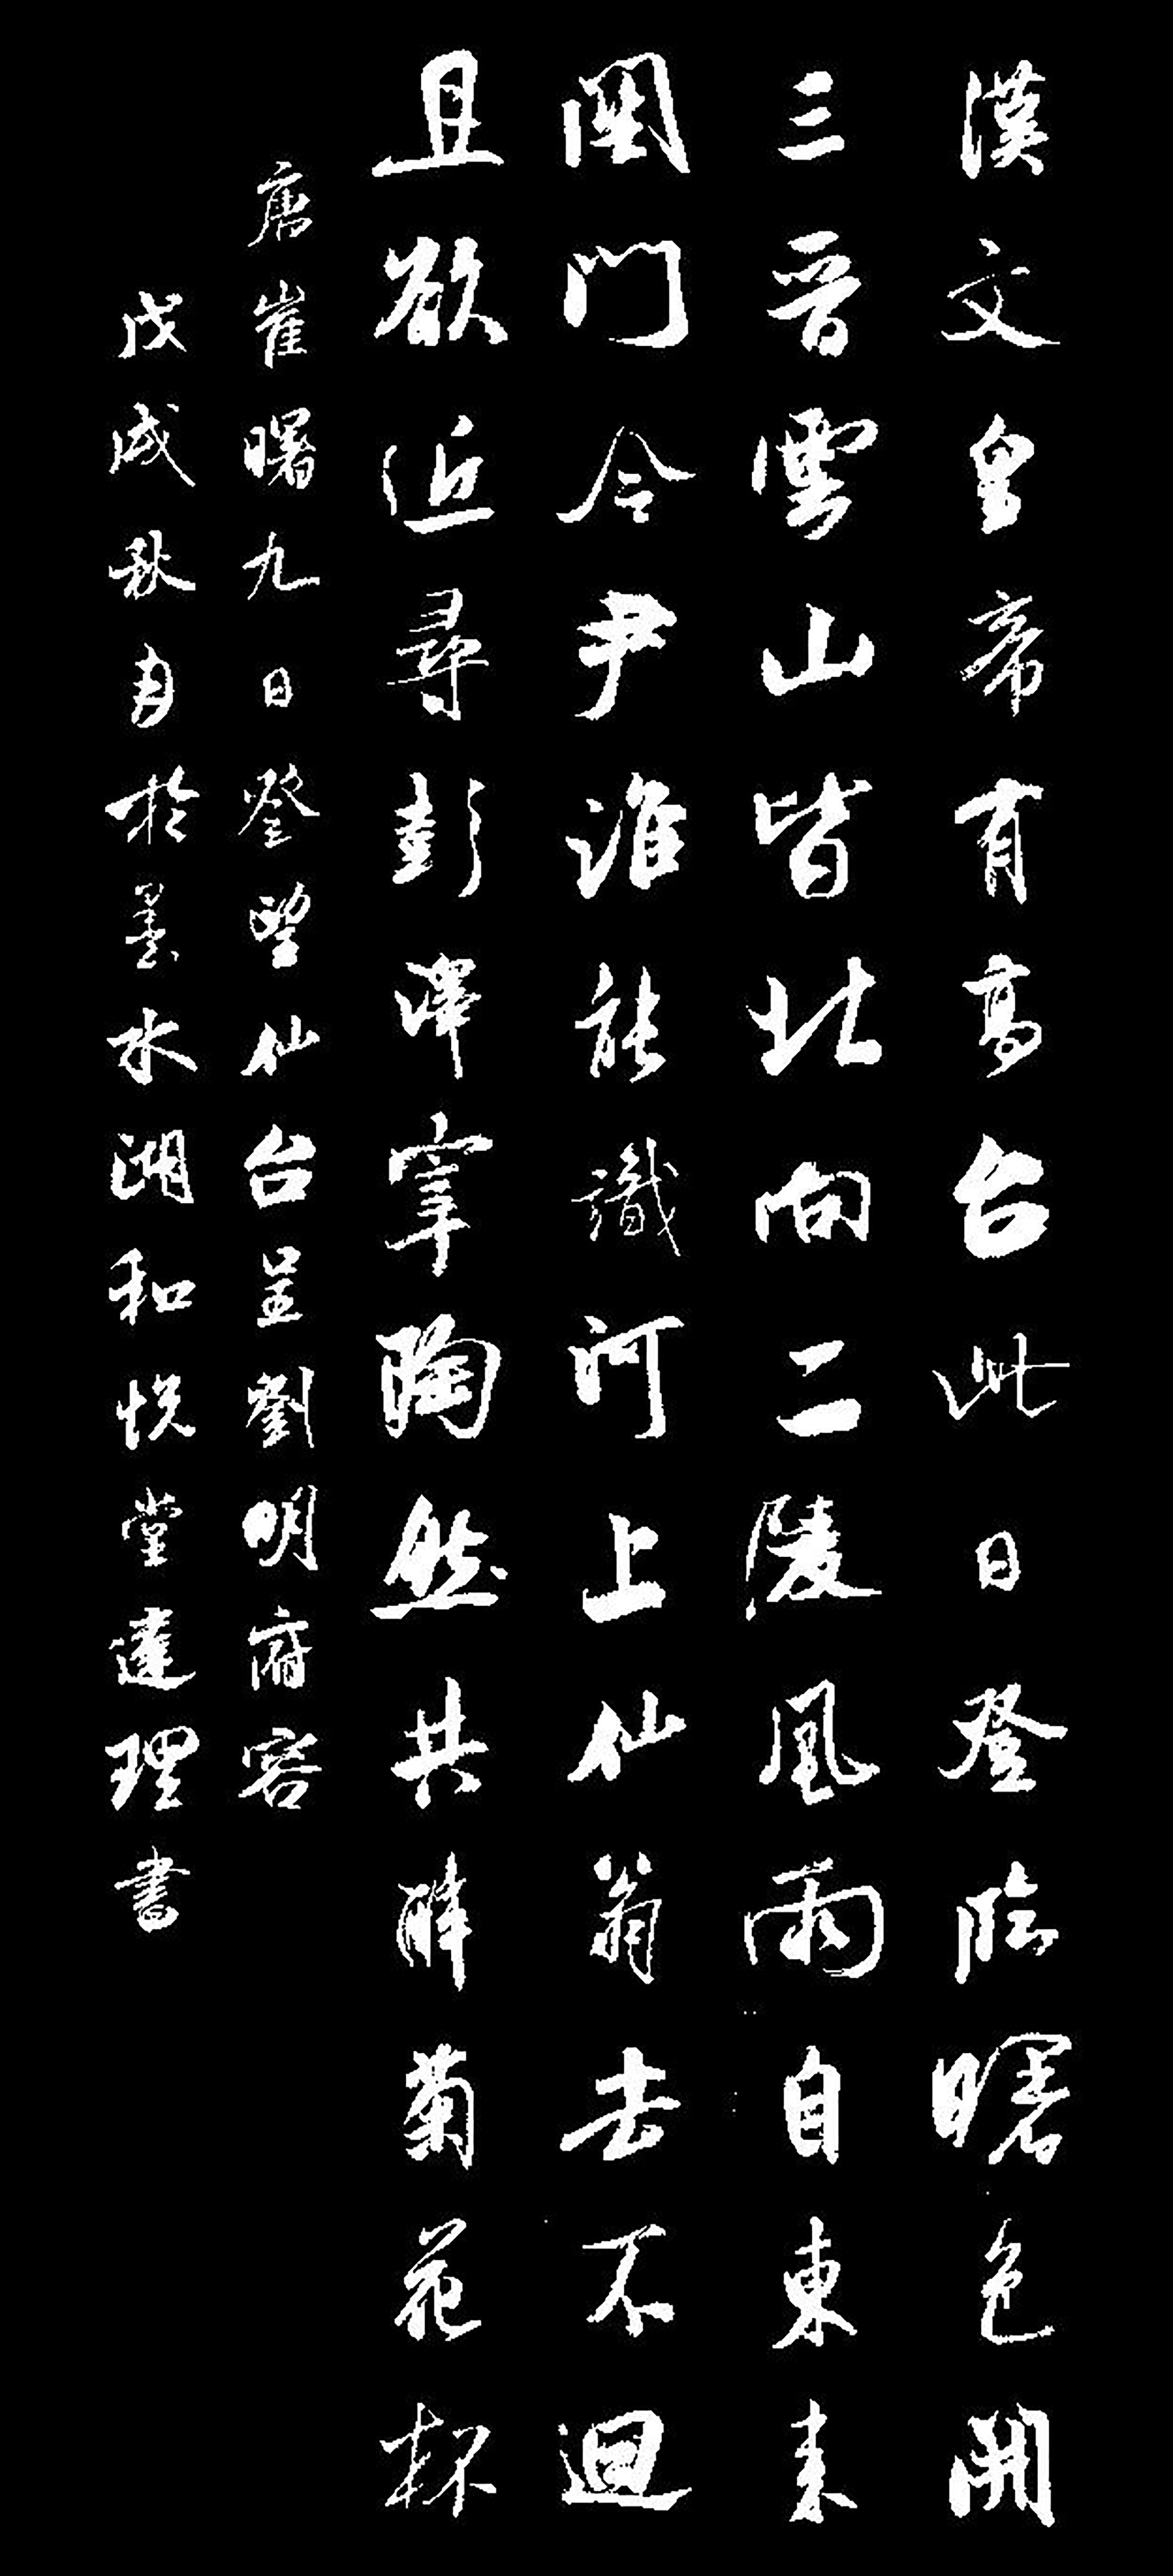 漢文皇帝有高台此日登臨曙色開
三晉雲山皆北向二陵風雨自東来
關門令尹誰能識河上仙翁去不迴
且欲近尋彭澤宰陶然共醉菊花杯
唐崔曙九日登望仙台呈劉明府容
戊戌秋月於墨水湖和悦堂達理書